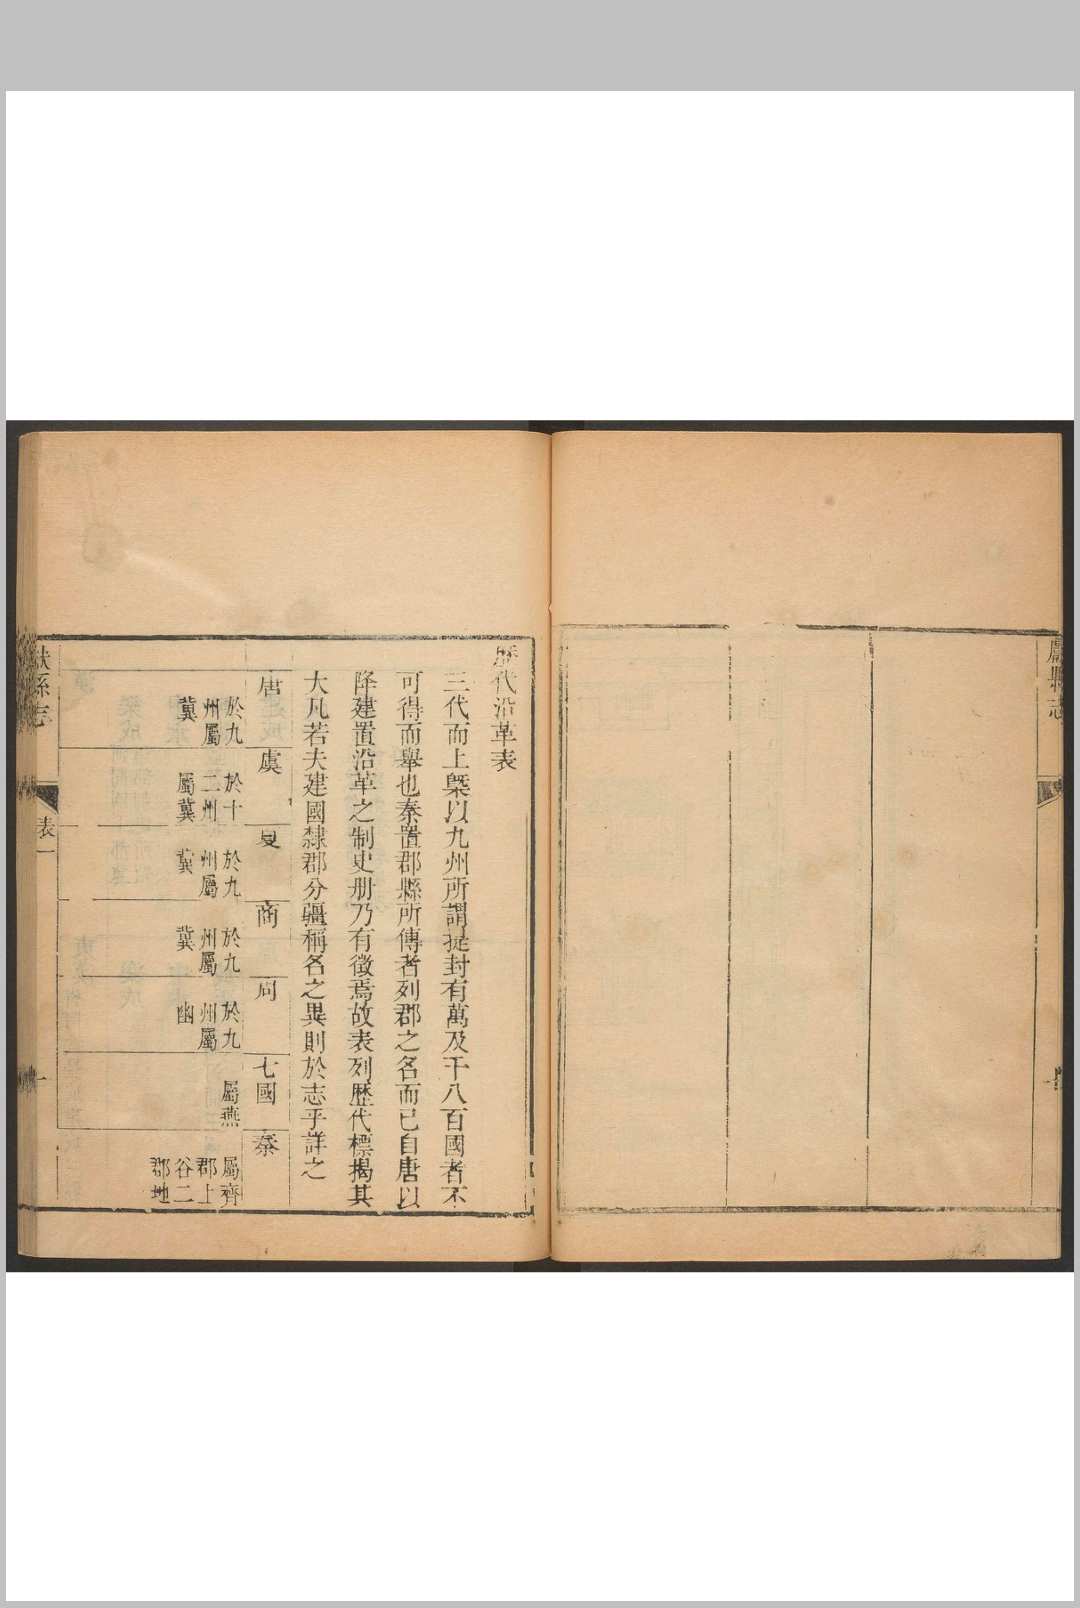 縣志
歷代沿革表
三代而上槩以九州所謂提封有萬及千八百國者不
可得而舉也秦置郡縣所傳者列郡之名而已自唐以
降建置沿革之制史册乃有徵焉故表列歷代標揭其
大凡若夫建國隸郡分疆稱名之異則於志乎詳之
唐
於九
州屬
冀
虞
於十
二州
屬冀
夏
於九
州屬
冀
商
於九
州屬
冀
周
於九
州屬
幽
七國
屬燕
秦
屬齊
郡上
谷二
郡地
縣志
表一
一